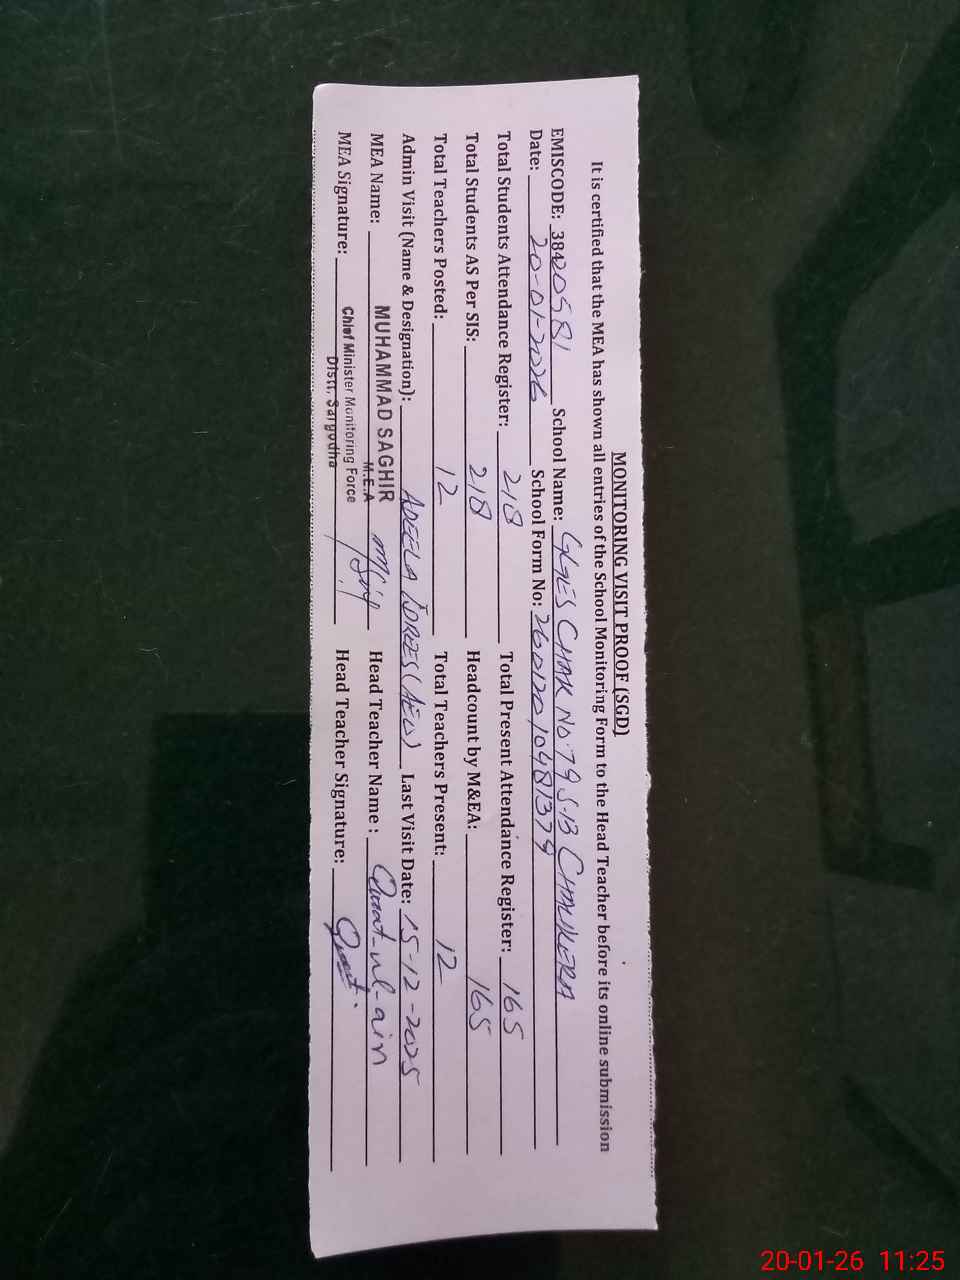 MONITORING VISIT PROOF (SGD)
It is certified that the MEA has shown all entries of the School Monitoring Form to the Head Teacher before its online submission
EMISCODE: 38420581 School Name: GGES CHAK NO. 79 S.B CHAUKERA
Date: 20-01-2026 School Form No: 26012010481379
Total Students Attendance Register: 218 Total Present Attendance Register: 165
Total Students AS Per SIS: 218 Headcount by M&EA: 165
Total Teachers Posted: 12 Total Teachers Present: 12
Admin Visit (Name & Designation): ADEELA IDREES (AEO) Last Visit Date: 15-12-2025
MEA Name: MUHAMMAD SAGHIR Head Teacher Name : Qurat-ul-ain
M.E.A
MEA Signature: Chief Minister Monitoring Force Head Teacher Signature: Qurat.
Distt. Sargodha
20-01-26 11:25